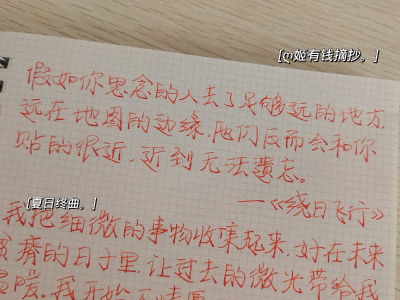 [ლ姬有钱摘抄。]
假如你思念的人去了足够远的地方
远在地图的边缘,他们反而会和你
贴的很近,近到无法遗忘。
——《绕日飞行》
[夏日终曲。]
我把细微的事物收集起来,好在未来
瘠的日子里,让过去的微光带给我
我开始